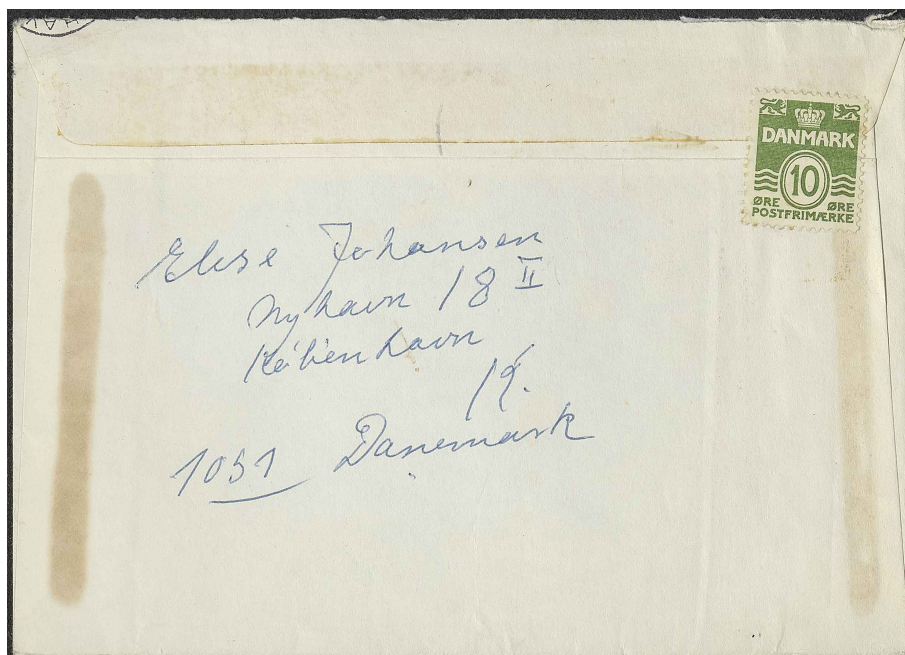 HAV
DANMARK
10
ØRE ØRE
POSTFRIMÆRKE
Else Johansen
Nyhavn 18 II
København
K.
1051 Danemark